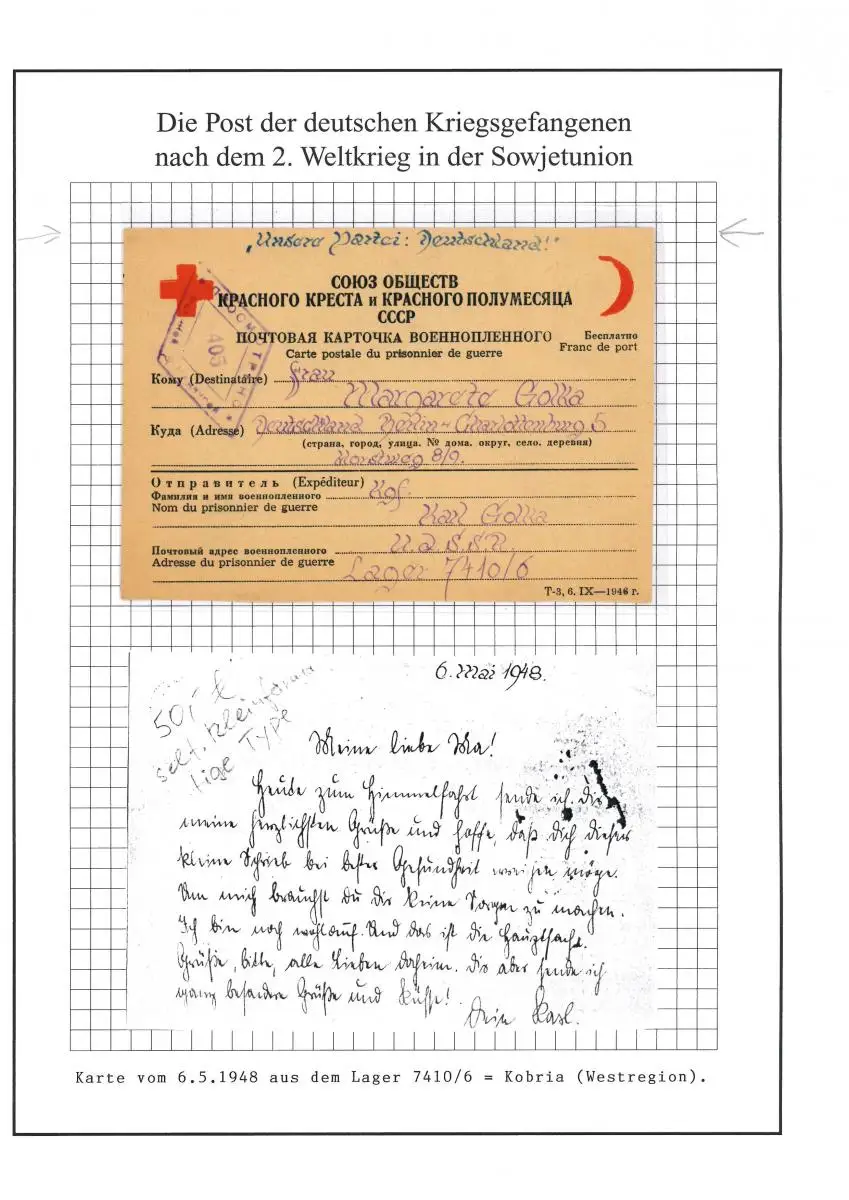 Die Post der deutschen Kriegsgefangenen
nach dem 2. Weltkrieg in der Sowjetunion
„Unsere Partei: Deutschland!“
СОЮЗ ОБЩЕСТВ
КРАСНОГО КРЕСТА и КРАСНОГО ПОЛУМЕСЯЦА
СССР
ПОЧТОВАЯ КАРТОЧКА ВОЕННОПЛЕННОГО
Carte postale du prisonnier de guerre
Бесплатно
Franc de port
405
Кому (Destinataire) Frau
Margarete Golka
Куда (Adresse) Deutschland Berlin-Charlottenburg 5
(страна, город, улица. № дома, округ, село, деревня)
Horstweg 8/9.
Отправитель (Expéditeur)
Фамилия и имя военнопленного Kgf.
Nom du prisonnier de guerre
Karl Golka
Почтовый адрес военнопленного U.d.S.S.R.
Adresse du prisonnier de guerre Lager 7410/6
Т-3, 6. IX—1946 г.
6. Mai 1948.
selt. kleinforma
tige TYPE
Meine liebe Ma!
Heute zum Himmelfahrt sende ich Dir
meine herzlichsten Grüße und hoffe, daß Dich dieser
kleine Schrieb bei bester Gesundheit erreichen möge.
Um mich brauchst Du Dir keine Sorgen zu machen.
Ich bin noch wohlauf. Und das ist die Hauptsache.
Grüße, bitte, alle Lieben daheim. Dir aber sende ich
ganz besondere Grüße und Küsse!
Dein Karl.
Karte vom 6.5.1948 aus dem Lager 7410/6 = Kobria (Westregion).